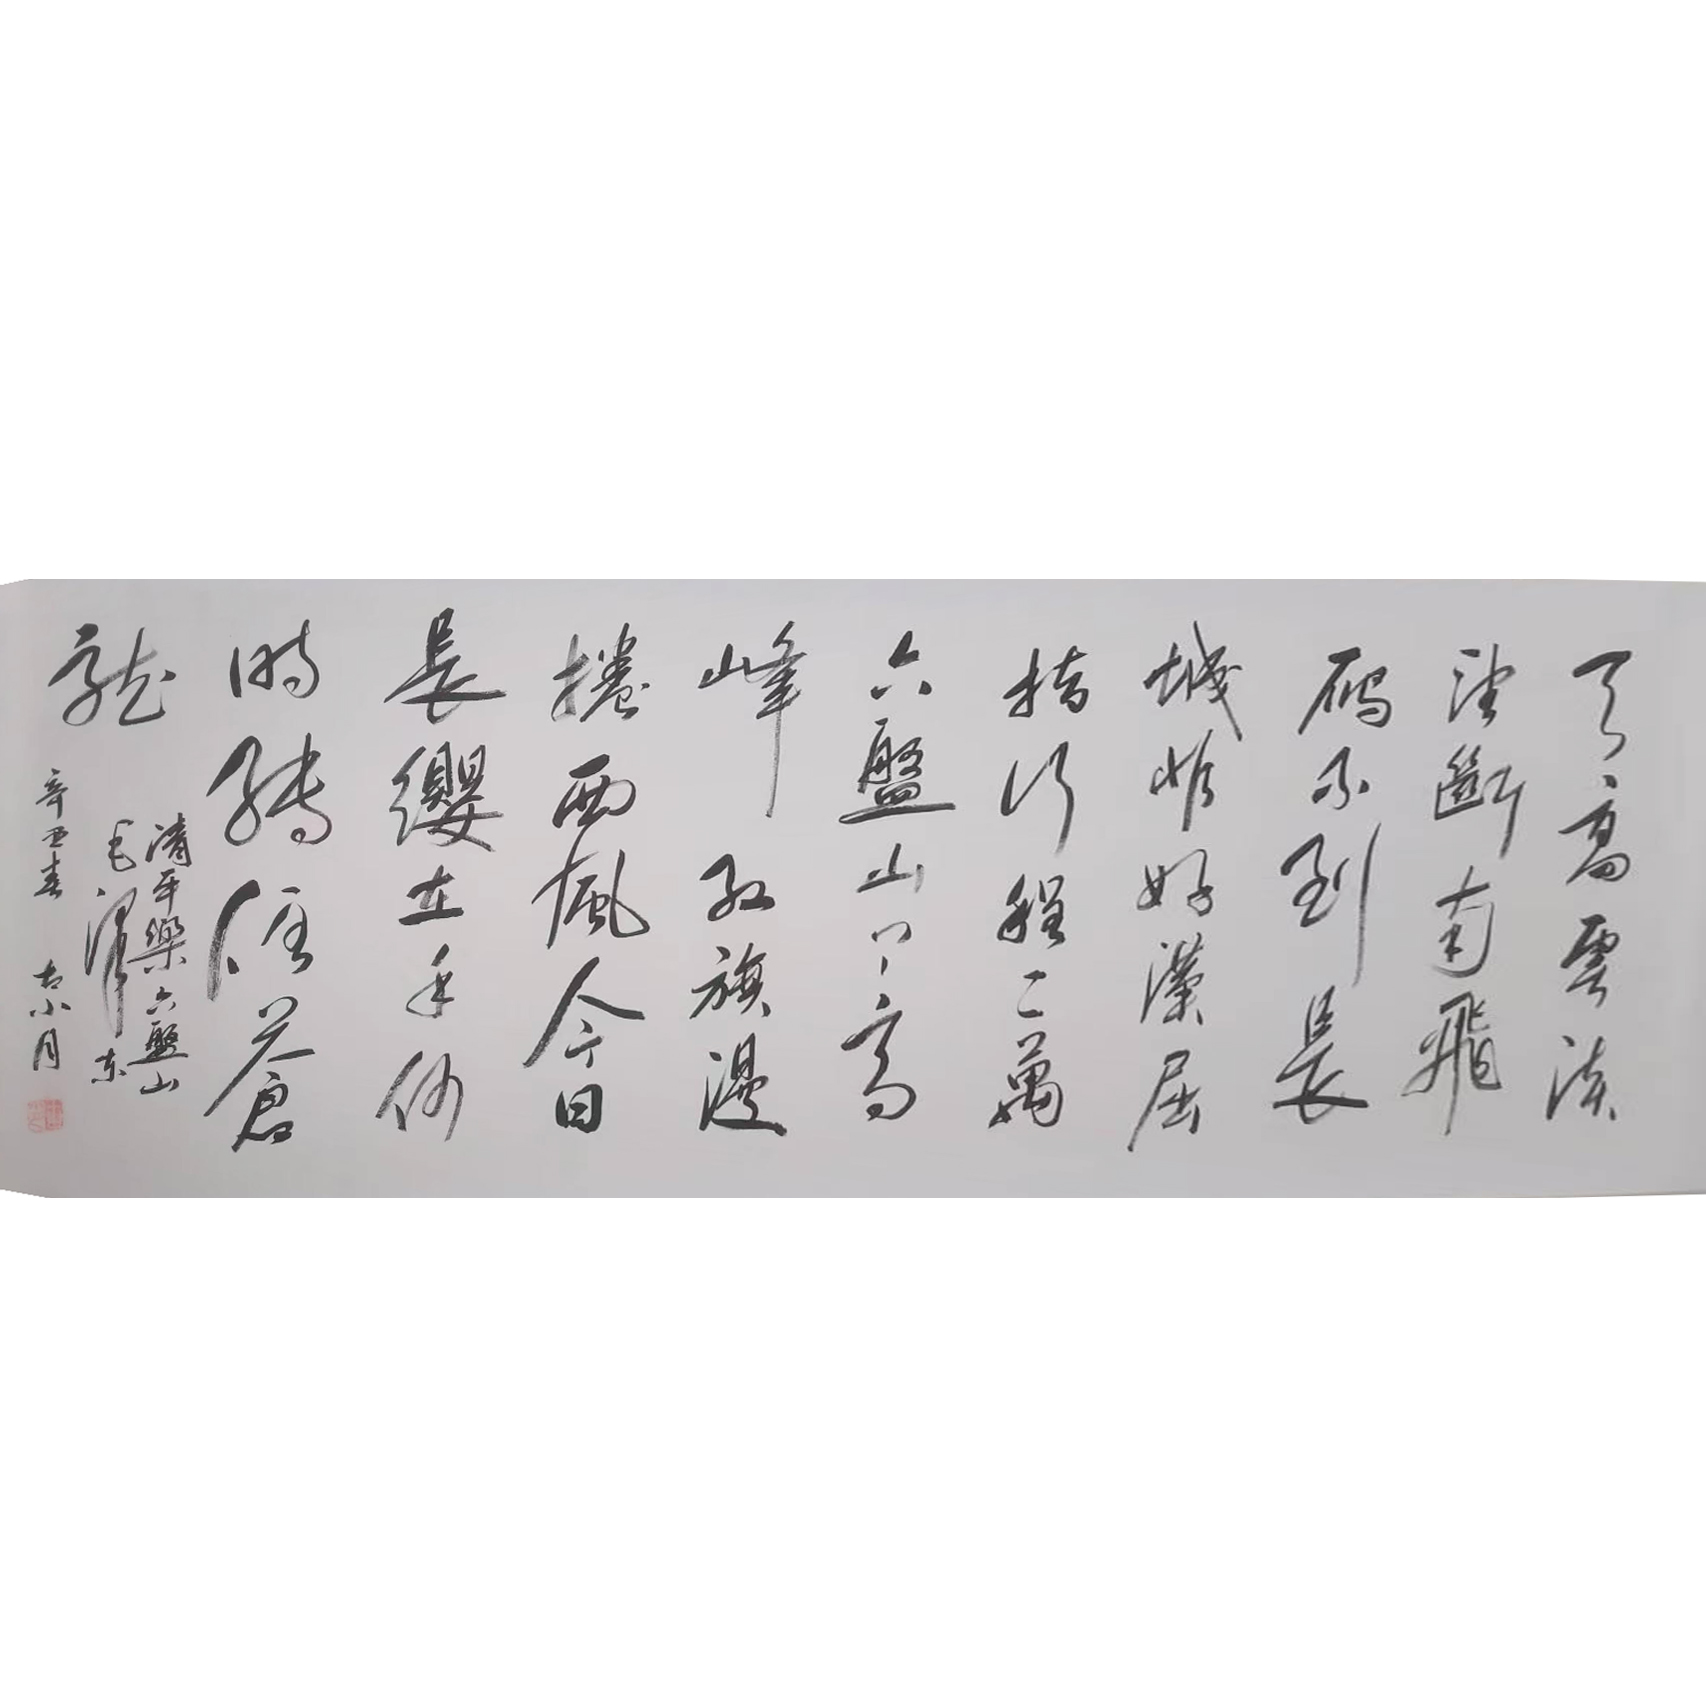 天高雲淡
望斷南飛
鴈不到長
城非好漢屈
指行程二萬
六盤山上高
峰紅旗漫
捲西風今日
長纓在手何
時縛住蒼
龍
清平樂六盤山
毛澤东
辛丑春 古小月